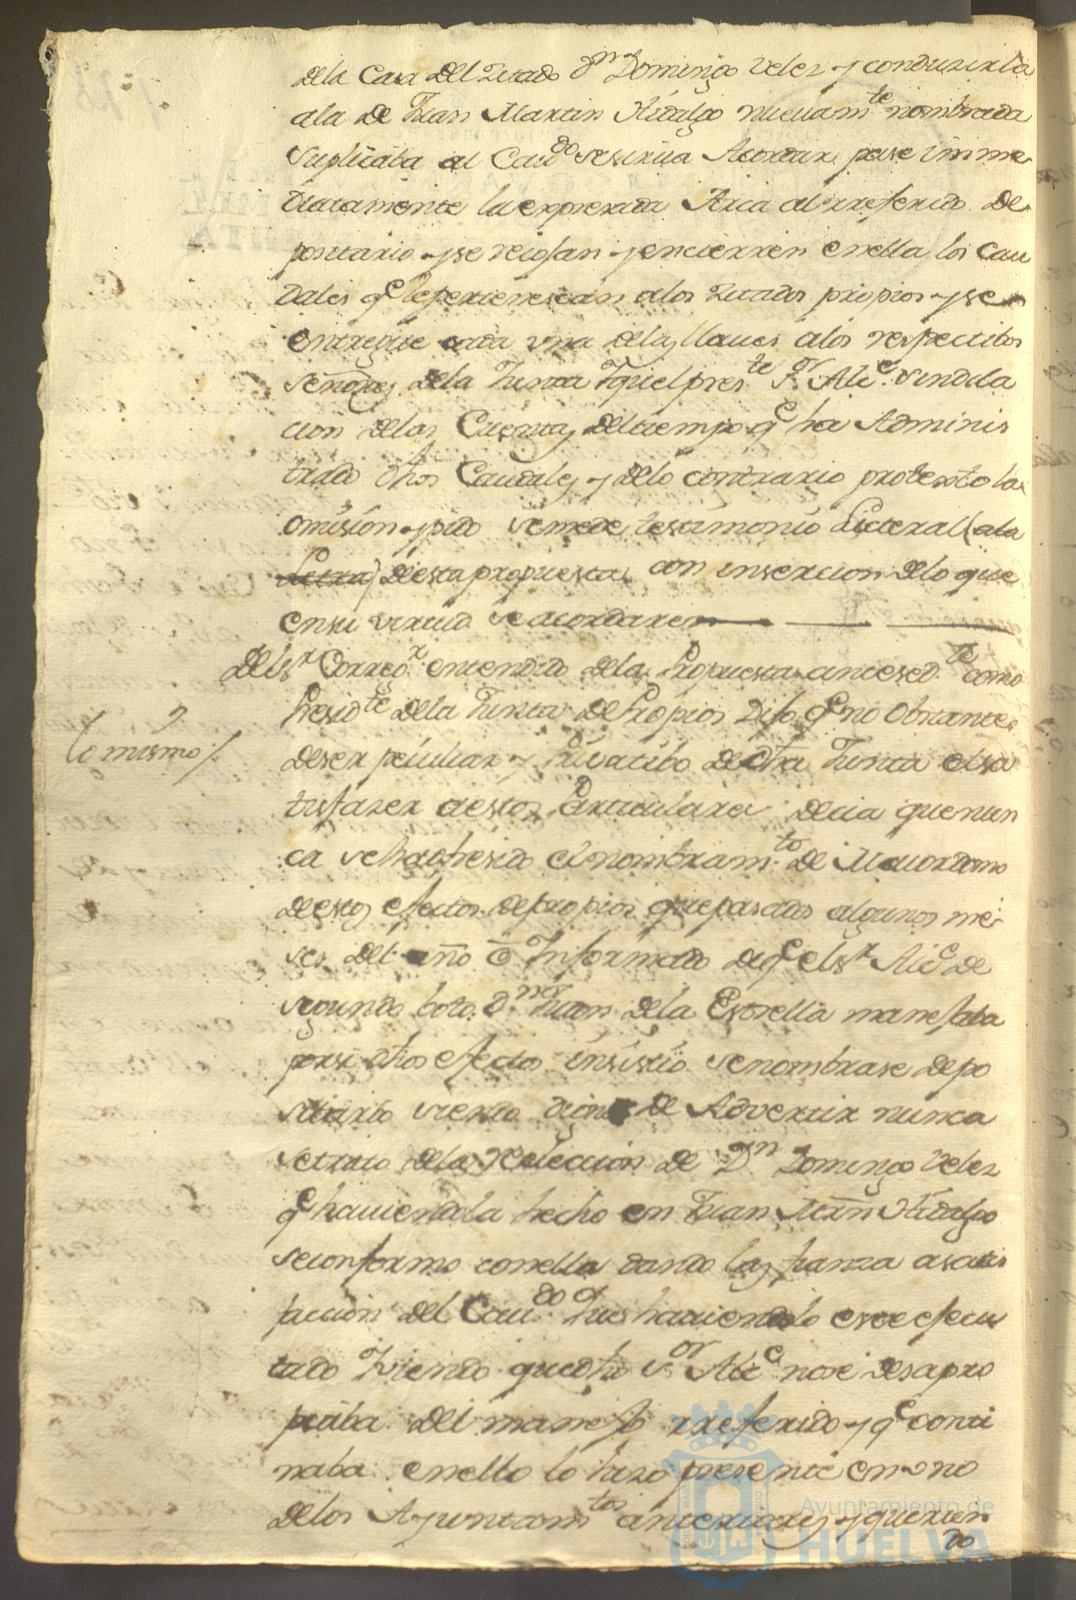 dela Casa del Zitado Dn Domingo Velez y conduzirla
ala de Juan Martin Hidalgo nuevamte nombrada
Suplicaba al Caudo sesirva Acordar pase inme
diatamente la expresada Arca al rreferido De
positario y se recojan y encierren enella los Cau
dales qe le pertenescan alos Zitados propios y se
entregue cada una delas llaues alos respectibos
Señores dela Junta y quel preste Sr Alce Rindala
cion delas Cuentas del tiempo qe ha Adminis
trado dhos Caudales y delo contrario protexto la
omision y pido seme de testimonio Lyteral (ala
Letra) de esta propuesta con insercion delo que
ensu virtud se acordare
El Sr Corregr entendido dela Propuesta antesedte como
Presidte dela Junta de Propios Dijo qe no Obstante
deser peculiar y Privatibo de dha Junta elsa
tisfazer aestos Particulares decia que nun
ca sehaofresido el nombramto de Mayordomo
de estos efectos de propios que pasados algunos me
ses del año e Informado de qe el Sr Alce de
segundo boto Dn Juan dela Estrella manejaba
porsi dhos efectos insistio senombrase depo
sitario siendo digno de Advertir nunca
setrato dela reelecion de Dn Domingo Velez
qe haviendola hecho en Juan Martn Hidalgo
seconformo conella dando las fianza asatis
facion del Caudo qe haviendolo este efecu
tado y viendo quedho Sor Alce nose desapro
piaba del manejo rreferido y qe conti
naba enello lo hizo presente en uno
delos Ayuntamtos anteriores y querien
do
lo mismo /.
Ayuntamiento de
HUELVA